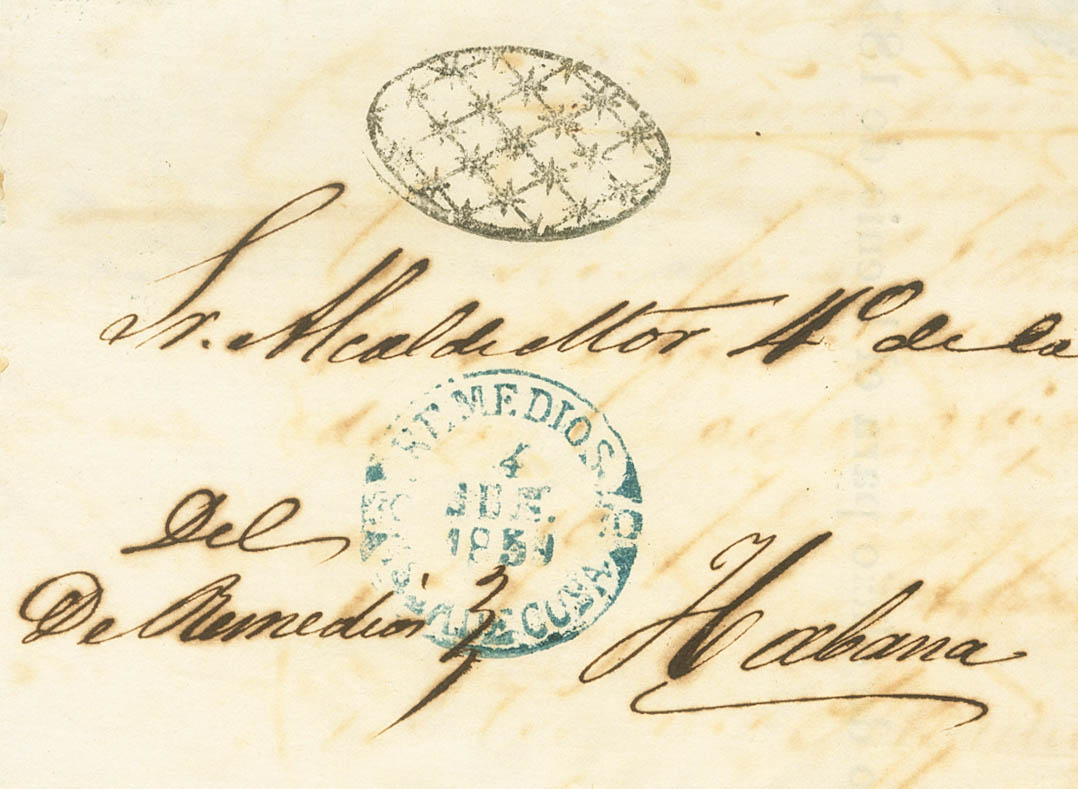 Sr. Alcalde Mor 4º de la
REMEDIOS
4
JUN.
185
DE CUBA
Del
De Remedios
Habana